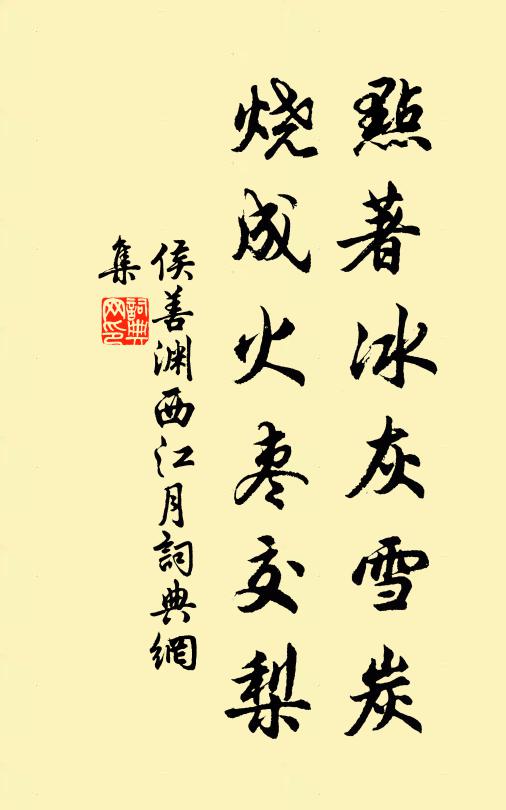 點著冰灰雪炭
烧成火枣交梨
侯善渊西江月詞典網
集
詞典
网印